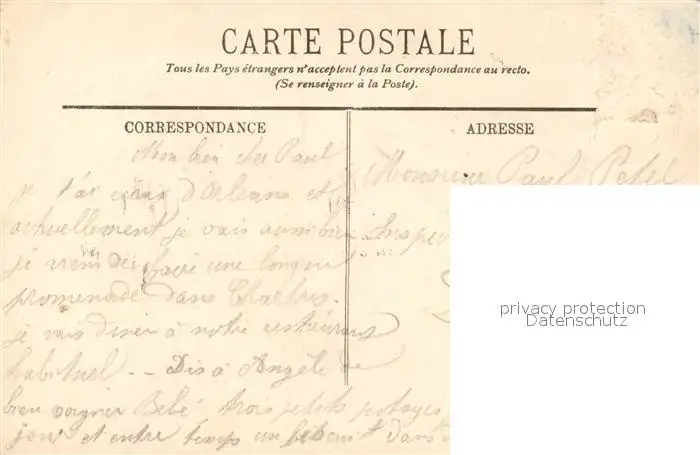 CARTE POSTALE
Tous les Pays étrangers n'acceptent pas la Correspondance au recto.
(Se renseigner à la Poste).
CORRESPONDANCE
ADRESSE
Mon bien cher Paul
je t'ai d'Orléans et
actuellement je vais aussi bien
je viens de faire une longue
promenade dans Chartres.
je vais diner à notre restaurant
habituel -- Dis à Angèle de
bien soigner Bébé trois petits potages
jour et entre temps un dans
Monsieur Paul Petel
Inspe
privacy protection
Datenschutz